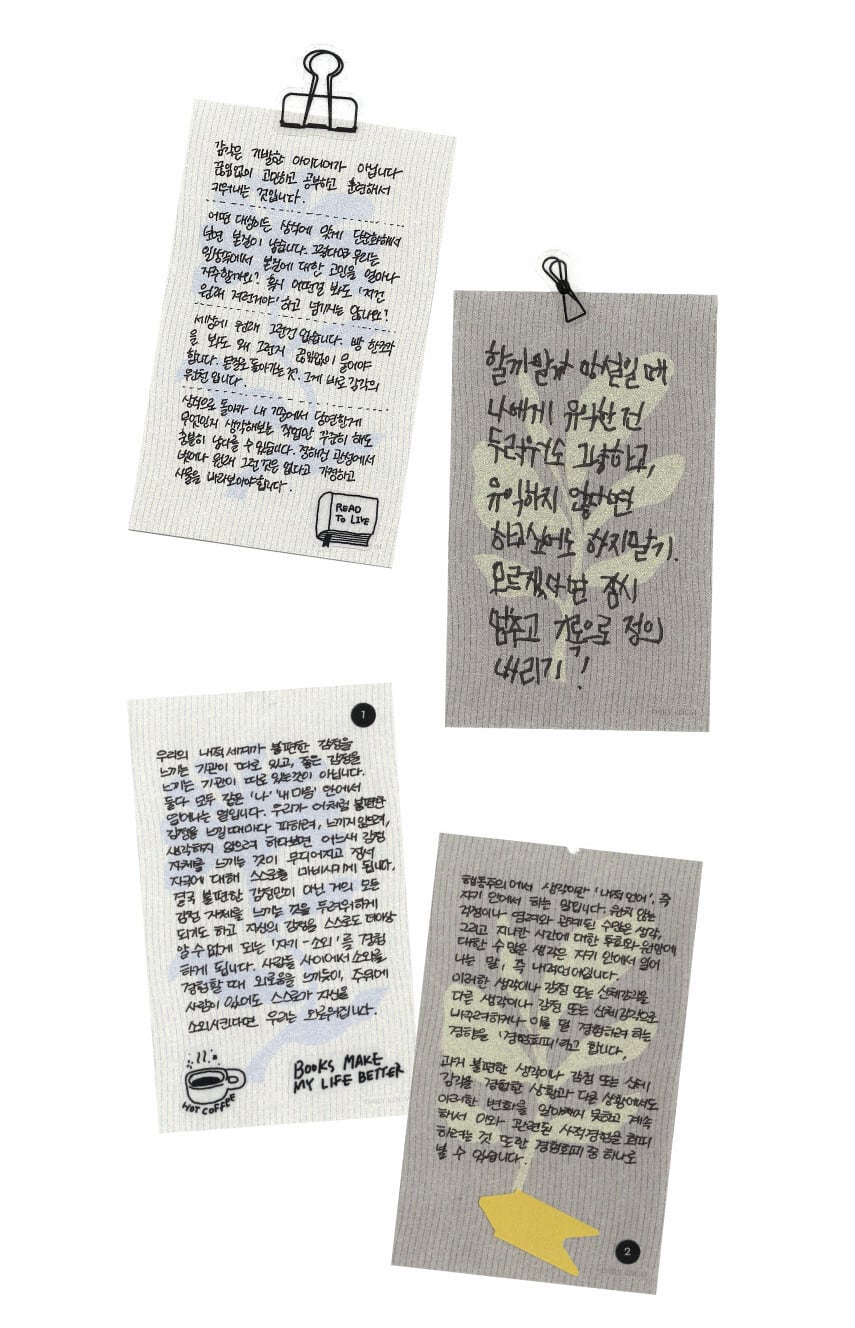 감각은 기발한 아이디어가 아닙니다
끊임없이 고민하고 공부하고 훈련해서
키워내는 것입니다.
어떤 대상이든 상식에 맞게 단순화해서
보면 본질이 남습니다. 그렇다면 우리는
일상속에서 본질에 대한 고민을 얼마나
자주할까요? 혹시 어떤걸 봐도 '저건
원래 저런거야' 하고 넘기지는 않나요?
세상에 원래 그런건 없습니다. 방 한켠과
을 봐도 왜 그런지 끊임없이 물어야
합니다. 본질로 돌아가는 것. 그게 바로 감각의
원천 입니다.
상식으로 돌아가 내 기준에서 당연한게
무엇인지 생각해보는 작업만 꾸준히 해도
충분히 남다를 수 있습니다. 정해진 관성에서
벗어나 원래 그런 것은 없다고 가정하고
사물을 바라보아야합니다.
READ
TO LIVE
할까말까 망설일 때
나에게 유익한 건
두려워도 그냥하고,
유익하지 않다면
하고싶어도 하지말기.
모르겠다면 잠시
멈추고 기록으로 정의
내리기!
1
우리의 내적세계가 불편한 감정을
느끼는 기관이 따로 있고, 좋은 감정을
느끼는 기관이 따로 있는것이 아닙니다.
둘다 모두 같은 '나' '내 마음' 안에서
일어나는 일입니다. 우리가 이처럼 불편한
감정을 느낄 때마다 피하려, 느끼지 않으려,
생각하지 않으려 하다보면 어느새 감정
자체를 느끼는 것이 무디어지고 정서
자극에 대해 스스로를 마비시키게 됩니다.
결국 불편한 감정만이 아닌 거의 모든
감정 자체를 느끼는 것을 두려워하게
되기도 하고 자신의 감정을 스스로도 더이상
알 수 없게 되는 '자기-소외'를 경험
하게 됩니다. 사람들 사이에서 소외를
경험할 때 외로움을 느끼듯이, 주위에
사람이 있어도 스스로가 자신을
소외시킨다면 우리는 외로워집니다.
HOT COFFEE
BOOKS MAKE
MY LIFE BETTER
행동주의에서 생각이란 '내적언어', 즉
자기 안에서 하는 말입니다. 원치 않는
걱정이나 염려와 관계된 수많은 생각,
그리고 지나간 시간에 대한 후회와 원망에
대한 수많은 생각은 자기 안에서 일어
나는 말, 즉 내적언어입니다.
이러한 생각이나 감정 또는 신체감각을
다른 생각이나 감정 또는 신체감각으로
바꾸려하거나 이를 덜 경험하려 하는
경향을 '경험회피'라고 합니다.
과거 불편한 생각이나 감정 또는 신체
감각을 경험한 상황과 다른 상황에서도
이러한 변화를 알아채지 못하고 계속
해서 이와 관련된 사적경험을 회피
하려는 것 또한 경험회피 중 하나로
볼 수 있습니다.
2